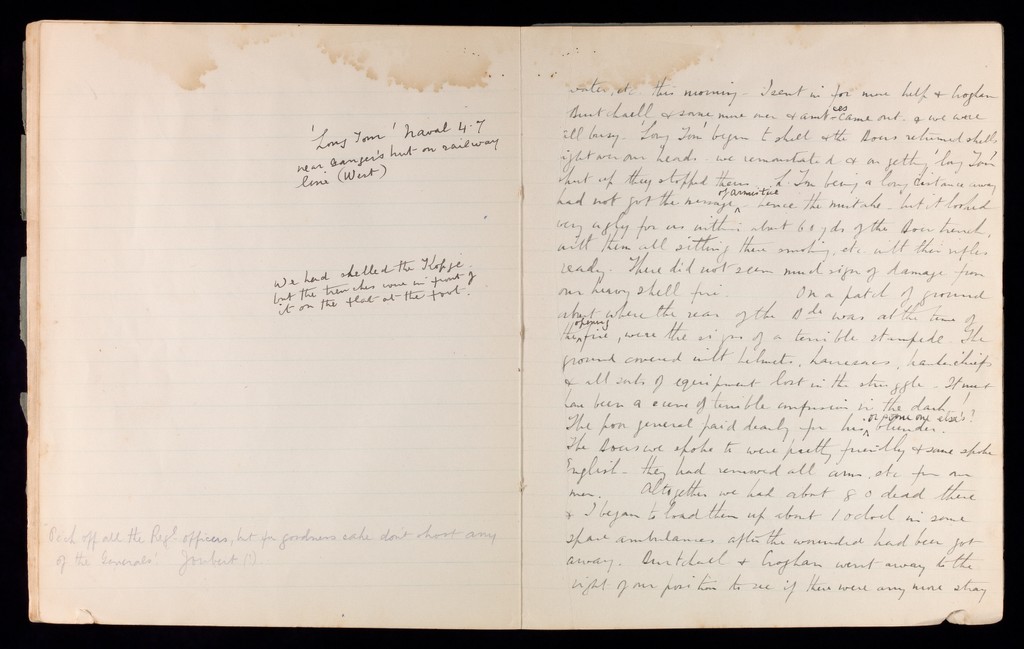 'Long Tom' Naval 4.7
near Ganger's hut on railway
line (West)
We had shelled the Kopje
but the trenches were in front of
it on the flat at the foot.
'Pick off all the Regl. officers, but for goodness sake don't shoot any
of the Generals'. Joubert (!)
water, etc. this morning. I sent in for more help & Croghan
Burtchaell & some more over & ambces came out & we were
all busy. 'Long Tom' began to shell & the Boers returned shells
right over our heads. we remonstrated & on getting 'long Tom'
shut up they stopped theirs. L. Tom being a long distance away
had not got the message of armistice hence the mistake. but it looked
very ugly for us within about 60 yds of the Boer trench,
with them all sitting there smoking, etc. with their rifles
ready. There did not seem much sign of damage from
our heavy shell fire. On a patch of ground
about where the rear of the Bde was at the time of
the opening fire, were the signs of a terrible stampede. The
ground covered with helmets, haversacks, handkerchiefs
& all sorts of equipment lost in the struggle. It must
have been a scene of terrible confusion in the dark!
The poor general paid dearly for his or some one else's? blunder.
The Boers we spoke to were pretty friendly & some spoke
English. they had removed all arms, etc. from our
men. Altogether we had about 80 dead there
& I began to load them up about 1 oclock in some
spare ambulances after the wounded had been got
away. Burtchaell & Croghan went away to the
right of our position to see if there were any more stray